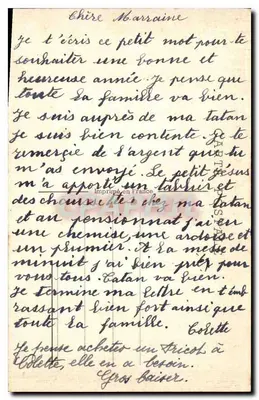 Chère Marraine
je t'écris ce petit mot pour te
souhaiter une bonne et
heureuse année. Je pense que
toute la famille va bien.
Je suis auprès de ma tatan
je suis bien contente. Je te
remercie de l'argent que tu
m'as envoyé. Le petit jésus
m'a apporté un tablier et
des chez ma tatan
et au j'ai eu
une chemise, une ardoise et
un plumier. A la messe de
minuit j'ai bien prié pour
vous tous. Tatan va bien.
Je termine ma lettre en t'emb
rassant bien fort ainsi que
toute la famille.
Colette
Je pense acheter un tricot à
Colette, elle en a besoin.
Gros baiser.